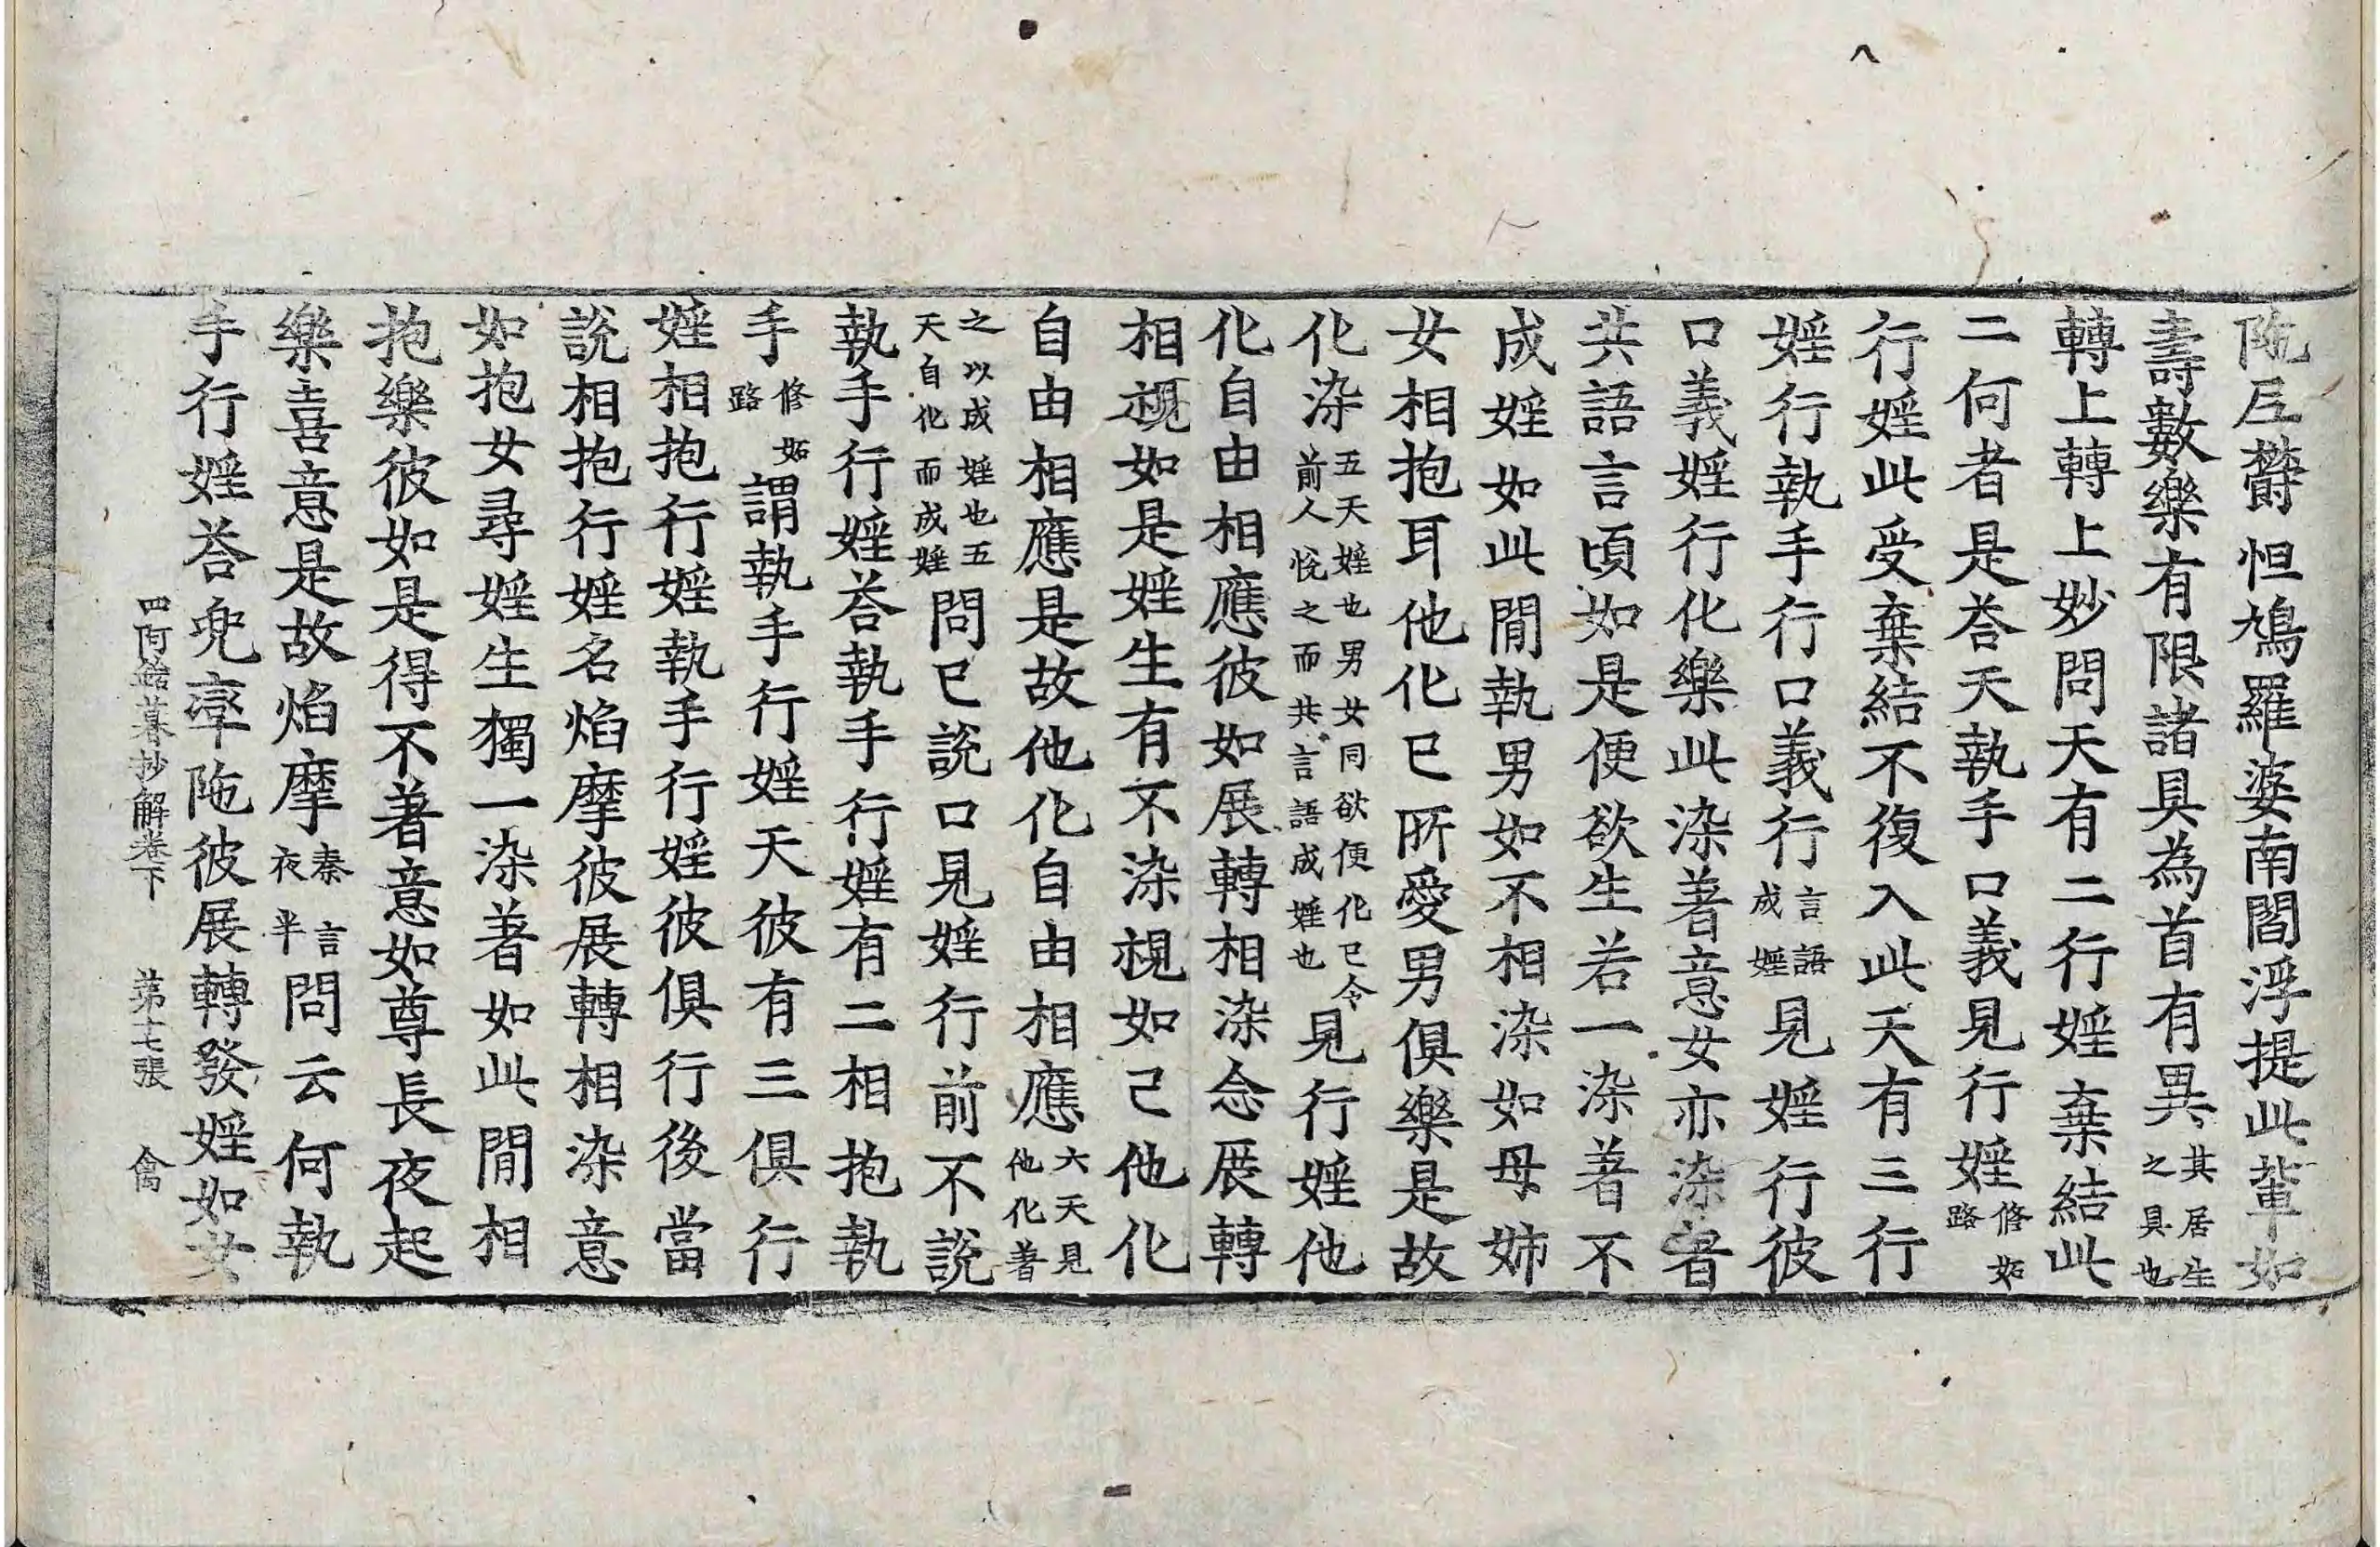 陁尼欝怛鳩羅婆南閻浮提此輩如
壽數樂有限諸具為首有異其居生之具也
轉上轉上妙問天有二行婬棄結此
二何者是荅天執手口義見行婬修妬路
行婬此受棄結不復入此天有三行
婬行執手行口義行言語成婬見婬行彼
口義婬行化樂此染著意女亦染著
共語言頃如是便欲生若一染著不
成婬如此閒執男如不相染如母姉
女相抱耳他化已所愛男俱樂是故
化染五天婬也男女同欲便化已令前人悅之而共言語成婬也見行婬他
化自由相應彼如展轉相染念展轉
相視如是婬生有不染視如己他化
自由相應是故他化自由相應六天見他化著
之以成婬也五天自化而成婬問已說口見婬行前不說
執手行婬荅執手行婬有二相抱執
手修妬路謂執手行婬天彼有三俱行
婬相抱行婬執手行婬彼俱行後當
說相抱行婬名焰摩彼展轉相染意
如抱女尋婬生獨一染著如此閒相
抱樂彼如是得不著意如尊長夜起
樂喜意是故焰摩秦言夜半問云何執
手行婬荅兜率陁彼展轉發婬如女
四阿鋡暮抄解卷下　第七張　禽